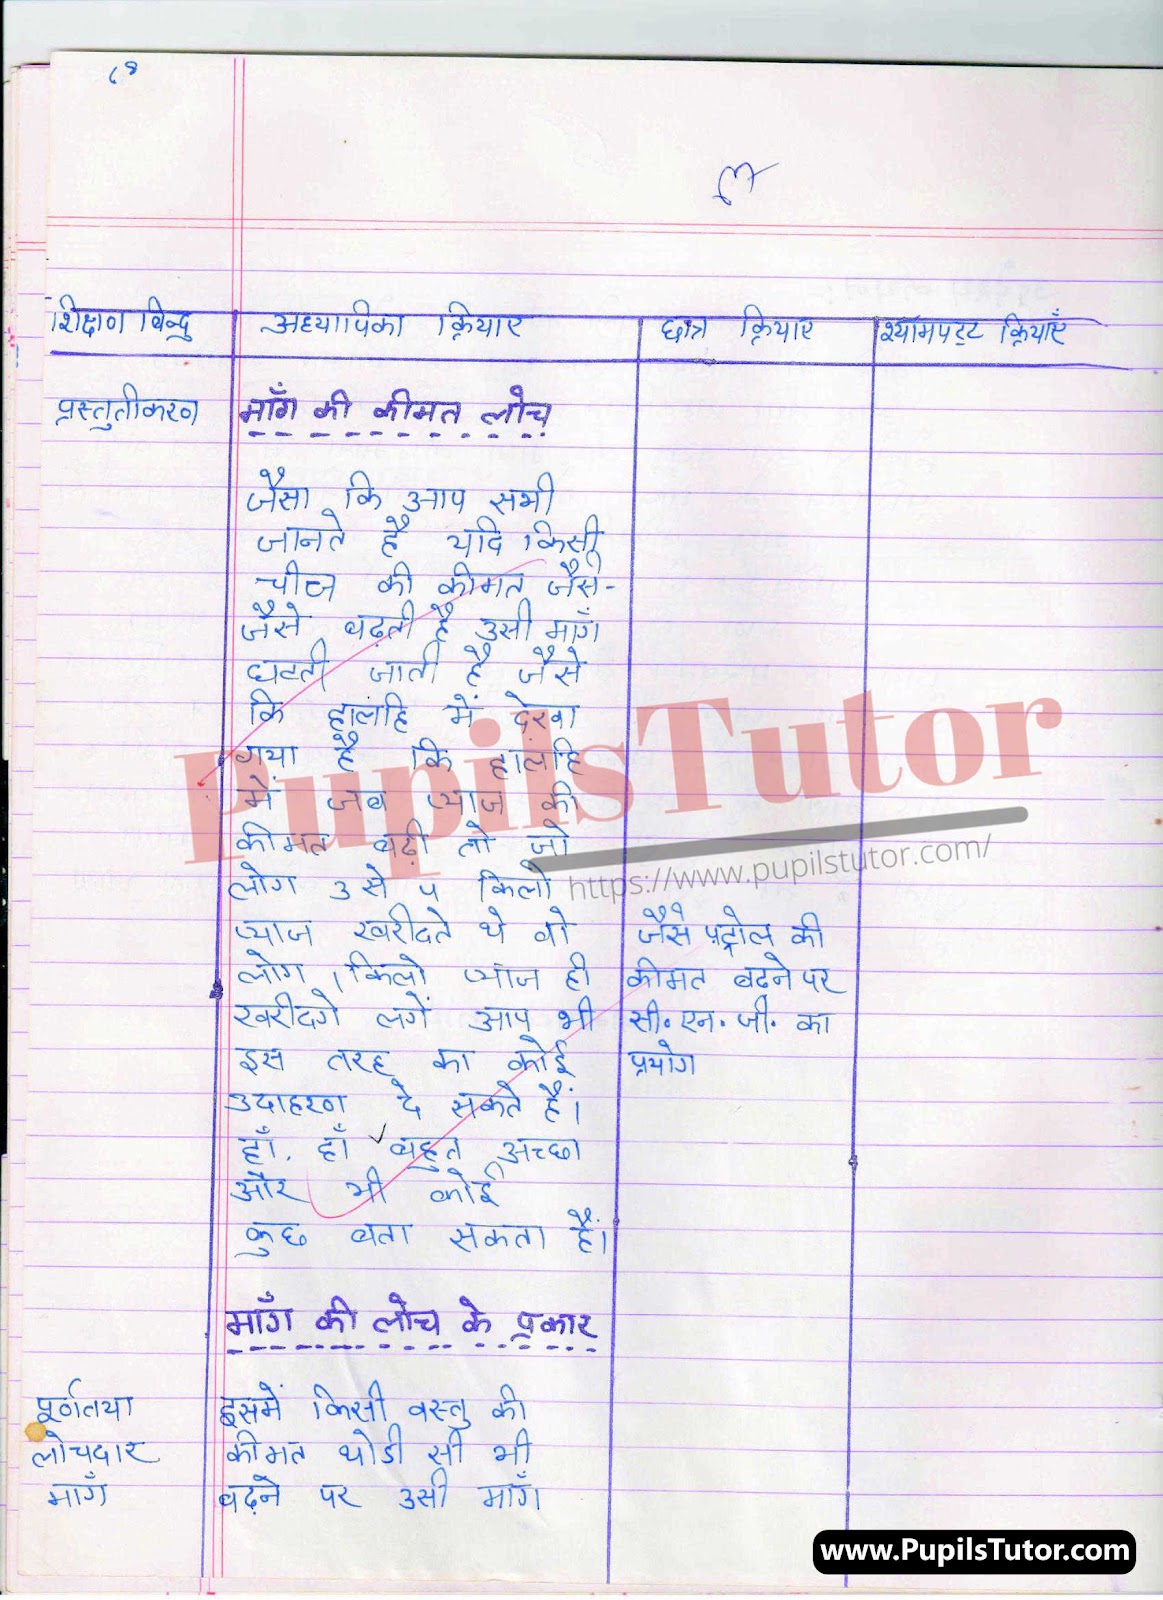 शिक्षण बिन्दु अध्यापिका क्रियाए छात्र क्रियाए श्यामपट्ट क्रियाएँ
प्रस्तुतीकरण माँग की कीमत लोच
जैसा कि आप सभी
जानते है यदि किसी
चीज की कीमत जैसे-
जैसे बढ़ती है उसी माँग
घटती जाती है जैसे
कि हालहि में देखा
गया है कि हालहि
में जब प्याज की
कीमत बढ़ी तो जो
लोग 3 से ५ किलो
प्याज खरीदते थे वो
लोग 1 किलो प्याज ही
खरीदगे लगें आप भी
इस तरह का कोई
उदाहरण दे सकते हैं।
हाँ. हाँ बहुत अच्छा
और भी कोई
कुछ बता सकता हैं।
जैसे पट्रोल की
कीमत बढने पर
सी. एन. जी. का
प्रयोग
माँग की लोच के प्रकार
पूर्णतया
लोचदार
माँग
इसमें किसी वस्तु की
कीमत थोडी सी भी
बढ़ने पर उसी माँग
PupilsTutor
https://www.pupilstutor.com/
www.PupilsTutor.com